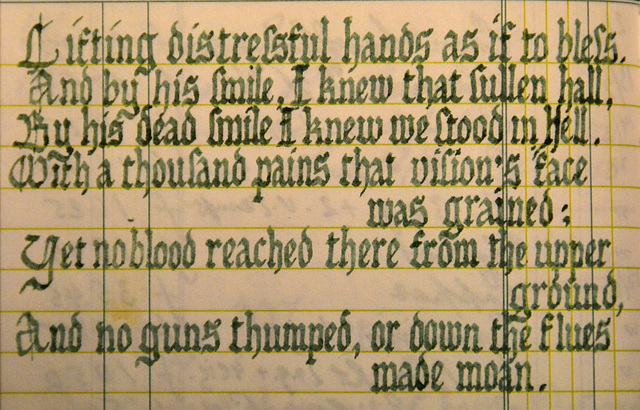 Lifting distreſsful hands as if to bleſs.
And by his ſmile, I knew that ſullen hall,
By his dead ſmile I knew we ſtood in Hell.
With a thouſand pains that viſion's face
was grained;
Yet no blood reached there from the upper
ground,
And no guns thumped, or down the flues
made moan.